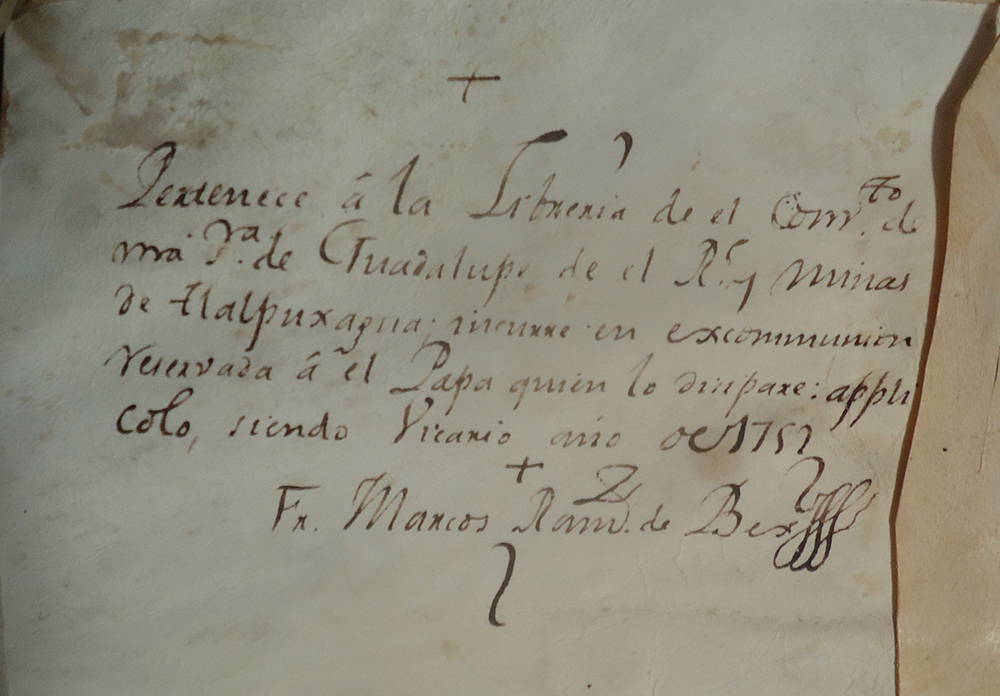 +
Pertenece â la Libreria de el Conv.to de
nrâ S.ra de Guadalupe de el R.l y Minas
de tlalpuxagua; incurre en excommunion
reservada â el Papa quien lo disipare: appli
colo, siendo Vicario año de 1752
+
Fr. Marcos Ramz. de